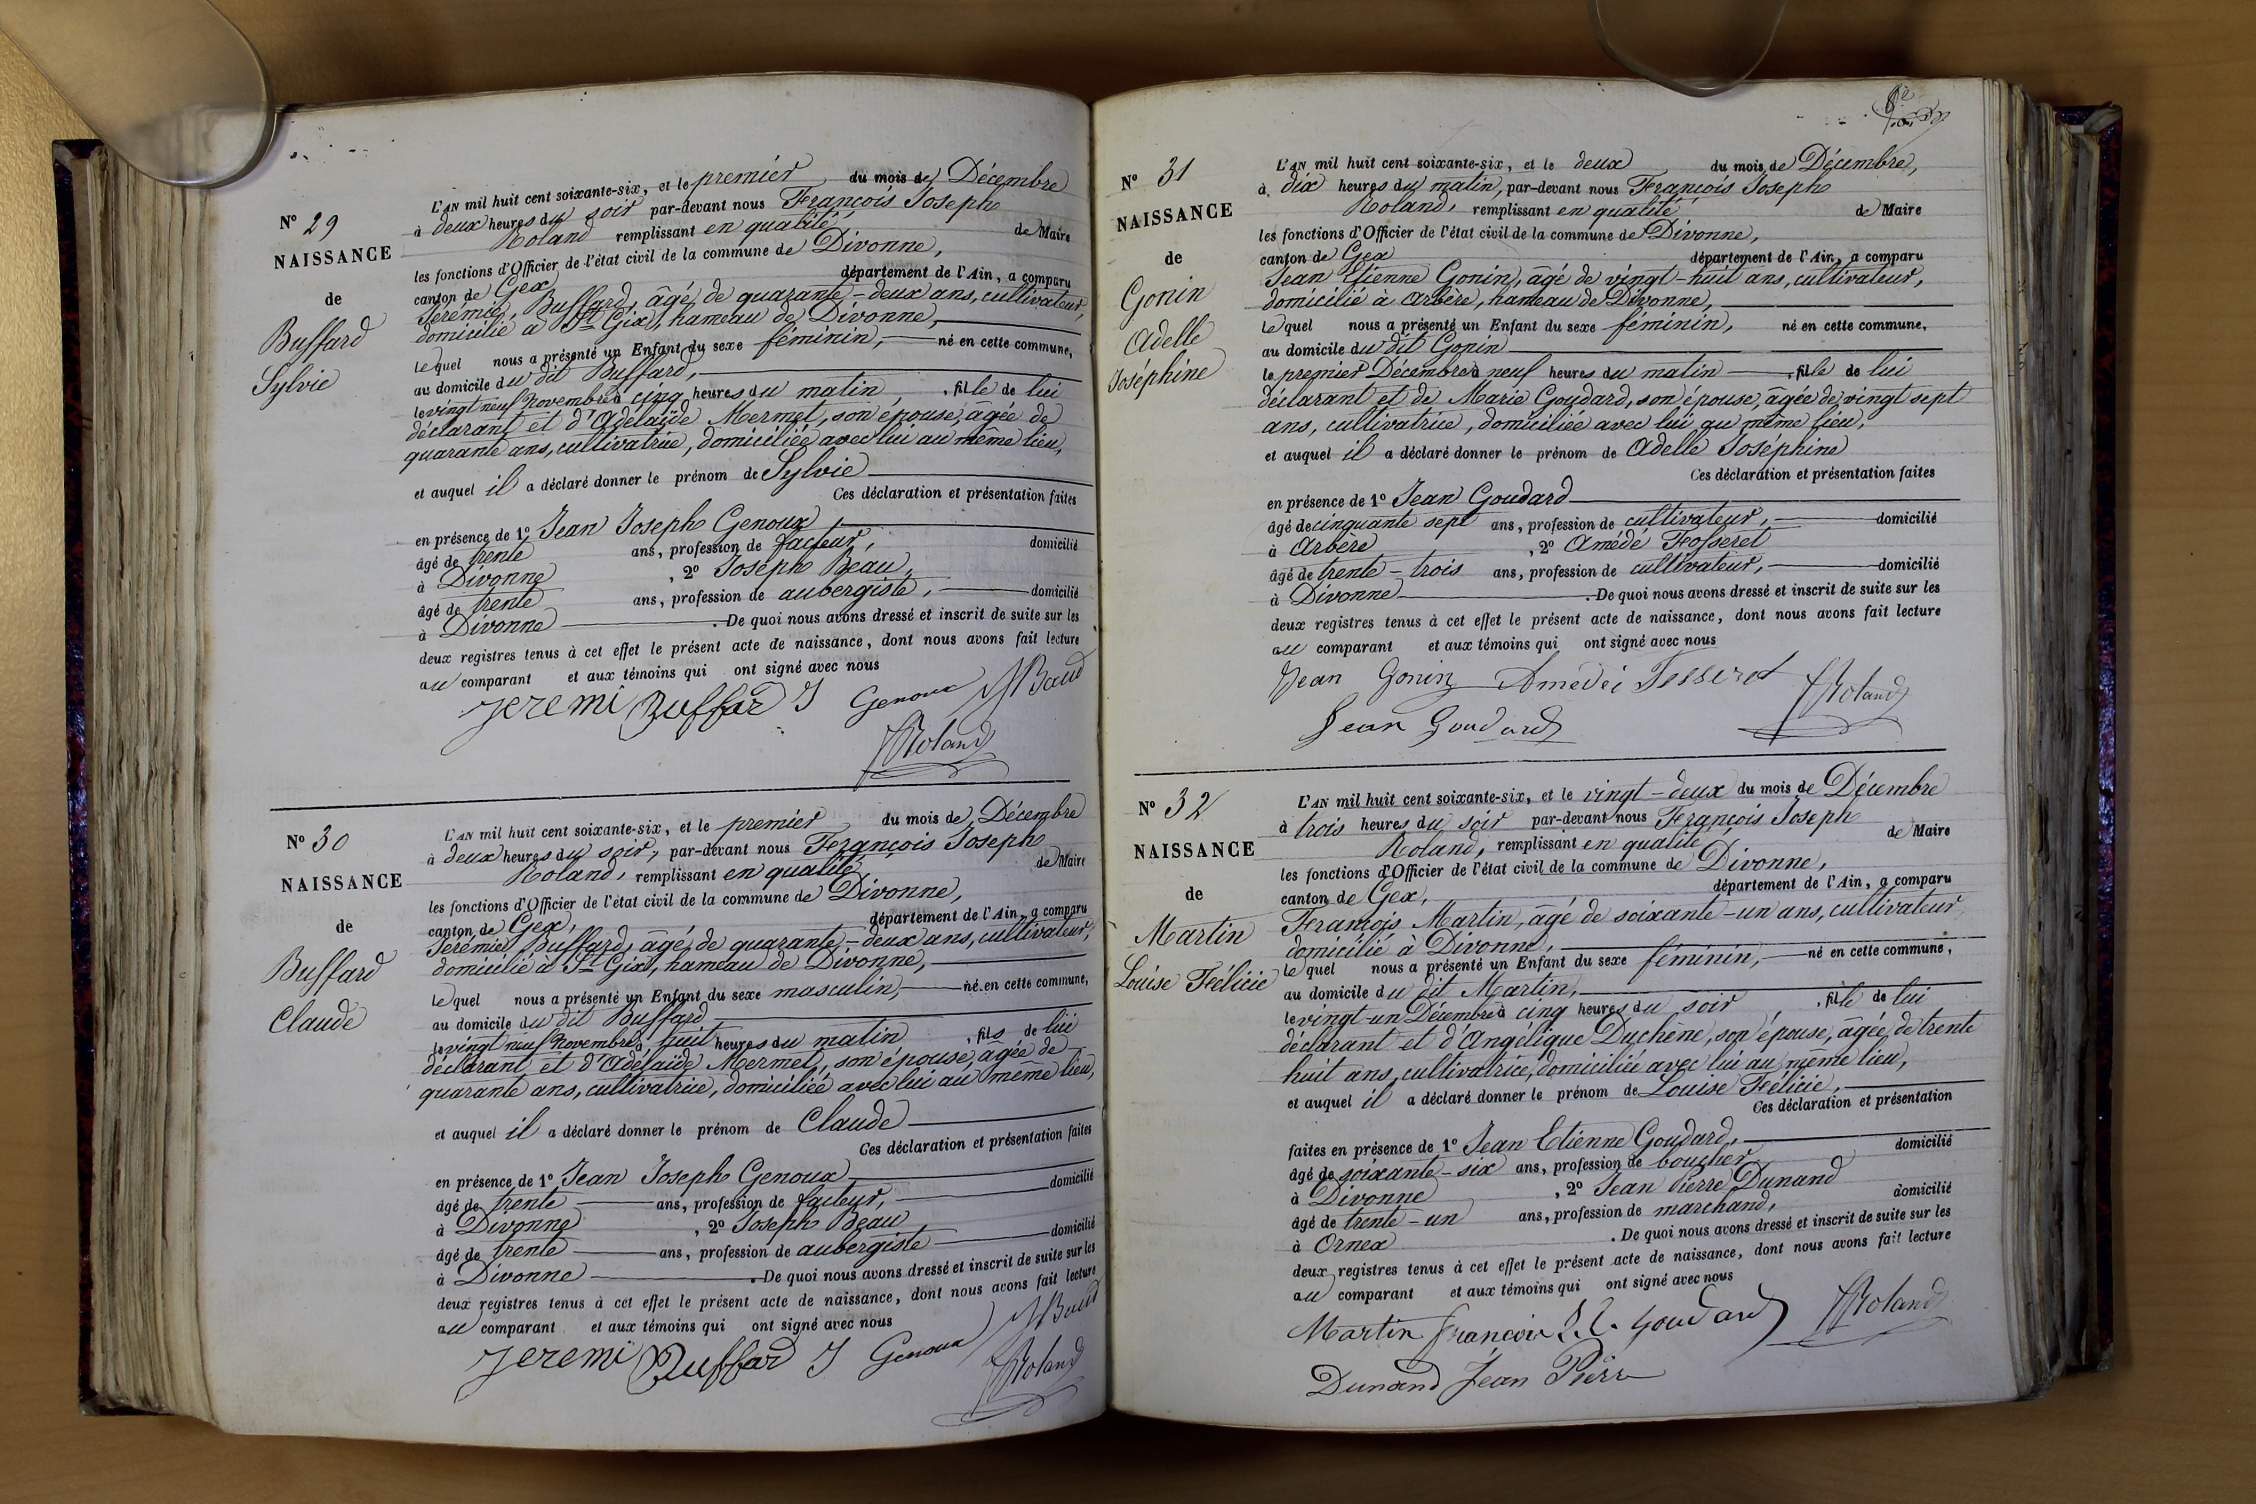 N° 29
NAISSANCE
de
Buffard
Sylvie
L'AN mil huit cent soixante-six, et le premier du mois de Décembre
à deux heures du soir par-devant nous François Joseph
Roland remplissant en qualité de Maire
les fonctions d'Officier de l'état civil de la commune de Divonne,
canton de Gex département de l'Ain, a comparu
Jérémie, Buffard, âgé de quarante-deux ans, cultivateur,
domicilié à St Gix, hameau de Divonne,
lequel nous a présenté un Enfant du sexe féminin, né en cette commune,
au domicile du dit Buffard,
le vingt neuf Novembre à cinq heures du matin, fille de lui
déclarant et d'Adélaïde Mermet, son épouse, âgée de
quarante ans, cultivatrice, domiciliée avec lui au même lieu,
et auquel il a déclaré donner le prénom de Sylvie
Ces déclaration et présentation faites
en présence de 1° Jean Joseph Genoux,
âgé de trente ans, profession de facteur, domicilié
à Divonne, 2° Joseph Beau,
âgé de trente ans, profession de aubergiste, domicilié
à Divonne. De quoi nous avons dressé et inscrit de suite sur les
deux registres tenus à cet effet le présent acte de naissance, dont nous avons fait lecture
au comparant et aux témoins qui ont signé avec nous
Jeremi Buffard J Genoux J Baud
Roland
N° 30
NAISSANCE
de
Buffard
Claude
L'AN mil huit cent soixante-six, et le premier du mois de Décembre
à deux heures du soir, par-devant nous François Joseph
Roland, remplissant en qualité de Maire
les fonctions d'Officier de l'état civil de la commune de Divonne,
canton de Gex, département de l'Ain, a comparu
Jérémie Buffard, âgé de quarante-deux ans, cultivateur,
domicilié à St Gix, hameau de Divonne,
lequel nous a présenté un Enfant du sexe masculin, né en cette commune,
au domicile du dit Buffard
le vingt neuf Novembre à huit heures du matin, fils de lui
déclarant et d'Adélaïde Mermet, son épouse, âgée de
quarante ans, cultivatrice, domiciliée avec lui au même lieu,
et auquel il a déclaré donner le prénom de Claude
Ces déclaration et présentation faites
en présence de 1° Jean Joseph Genoux
âgé de trente ans, profession de facteur, domicilié
à Divonne, 2° Joseph Beau
âgé de trente ans, profession de aubergiste domicilié
à Divonne. De quoi nous avons dressé et inscrit de suite sur les
deux registres tenus à cet effet le présent acte de naissance, dont nous avons fait lecture
au comparant et aux témoins qui ont signé avec nous
Jeremi Buffard J Genoux J Baud
Roland
N° 31
NAISSANCE
de
Gonin
Adelle
Joséphine
L'AN mil huit cent soixante-six, et le deux du mois de Décembre,
à dix heures du matin, par-devant nous François Joseph
Roland, remplissant en qualité de Maire
les fonctions d'Officier de l'état civil de la commune de Divonne,
canton de Gex département de l'Ain, a comparu
Jean Etienne Gonin, âgé de vingt-huit ans, cultivateur,
domicilié à Arbère, hameau de Divonne,
lequel nous a présenté un Enfant du sexe féminin, né en cette commune,
au domicile du dit Gonin
le premier Décembre à neuf heures du matin, fille de lui
déclarant et de Marie Goudard, son épouse, âgée de vingt sept
ans, cultivatrice, domiciliée avec lui au même lieu,
et auquel il a déclaré donner le prénom de Adelle Joséphine
Ces déclaration et présentation faites
en présence de 1° Jean Goudard
âgé de cinquante sept ans, profession de cultivateur, domicilié
à Arbère, 2° Amédé Fosseret
âgé de trente-trois ans, profession de cultivateur, domicilié
à Divonne. De quoi nous avons dressé et inscrit de suite sur les
deux registres tenus à cet effet le présent acte de naissance, dont nous avons fait lecture
au comparant et aux témoins qui ont signé avec nous
Jean Gonin Amédéé Fosseret Roland
Jean Goudard
N° 32
NAISSANCE
de
Martin
Louise Félicie
L'AN mil huit cent soixante-six, et le vingt-deux du mois de Décembre
à trois heures du soir par-devant nous François Joseph
Roland, remplissant en qualité de Maire
les fonctions d'Officier de l'état civil de la commune de Divonne,
canton de Gex, département de l'Ain, a comparu
François Martin, âgé de soixante-un ans, cultivateur
domicilié à Divonne,
lequel nous a présenté un Enfant du sexe féminin, né en cette commune,
au domicile du dit Martin,
le vingt-un Décembre à cinq heures du soir, fille de lui
déclarant et d'Angélique Duchêne, son épouse, âgée de trente
huit ans, cultivatrice, domiciliée avec lui au même lieu,
et auquel il a déclaré donner le prénom de Louise Félicie,
Ces déclaration et présentation
faites en présence de 1° Jean Etienne Goudard,
âgé de soixante-six ans, profession de boucher, domicilié
à Divonne, 2° Jean Pierre Dunand
âgé de trente-un ans, profession de marchand, domicilié
à Ornex. De quoi nous avons dressé et inscrit de suite sur les
deux registres tenus à cet effet le présent acte de naissance, dont nous avons fait lecture
au comparant et aux témoins qui ont signé avec nous
Martin françois J. E. Goudard Roland
Dunand Jean Pierre